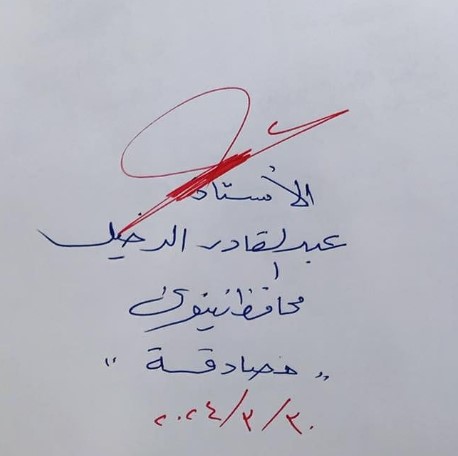 الأستاذ
عبدالقادر الدخيل
محافظ نينوى
"مصادقة"
٢٠٢٤/٣/٣٠